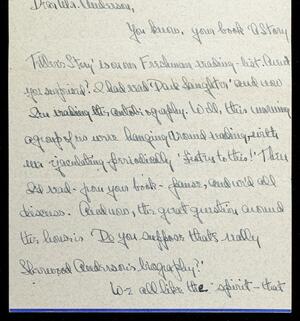 Dear Mr. Anderson,
You know, your book 'A Story
Teller's Story' is on our Freshman reading-list. Aren't
you surprised? I had read 'Dark Laughter' and now
I'm reading this autobiography. Well, this morning
a group of us were hanging around reading, with
me ejaculating periodically 'listen to this!' Then
I'd read - from your book - pause, and we'd all
discuss. And now, the great question around
the house is 'Do you suppose that's really
Sherwood Anderson's biography?'
We all like the spirit - that